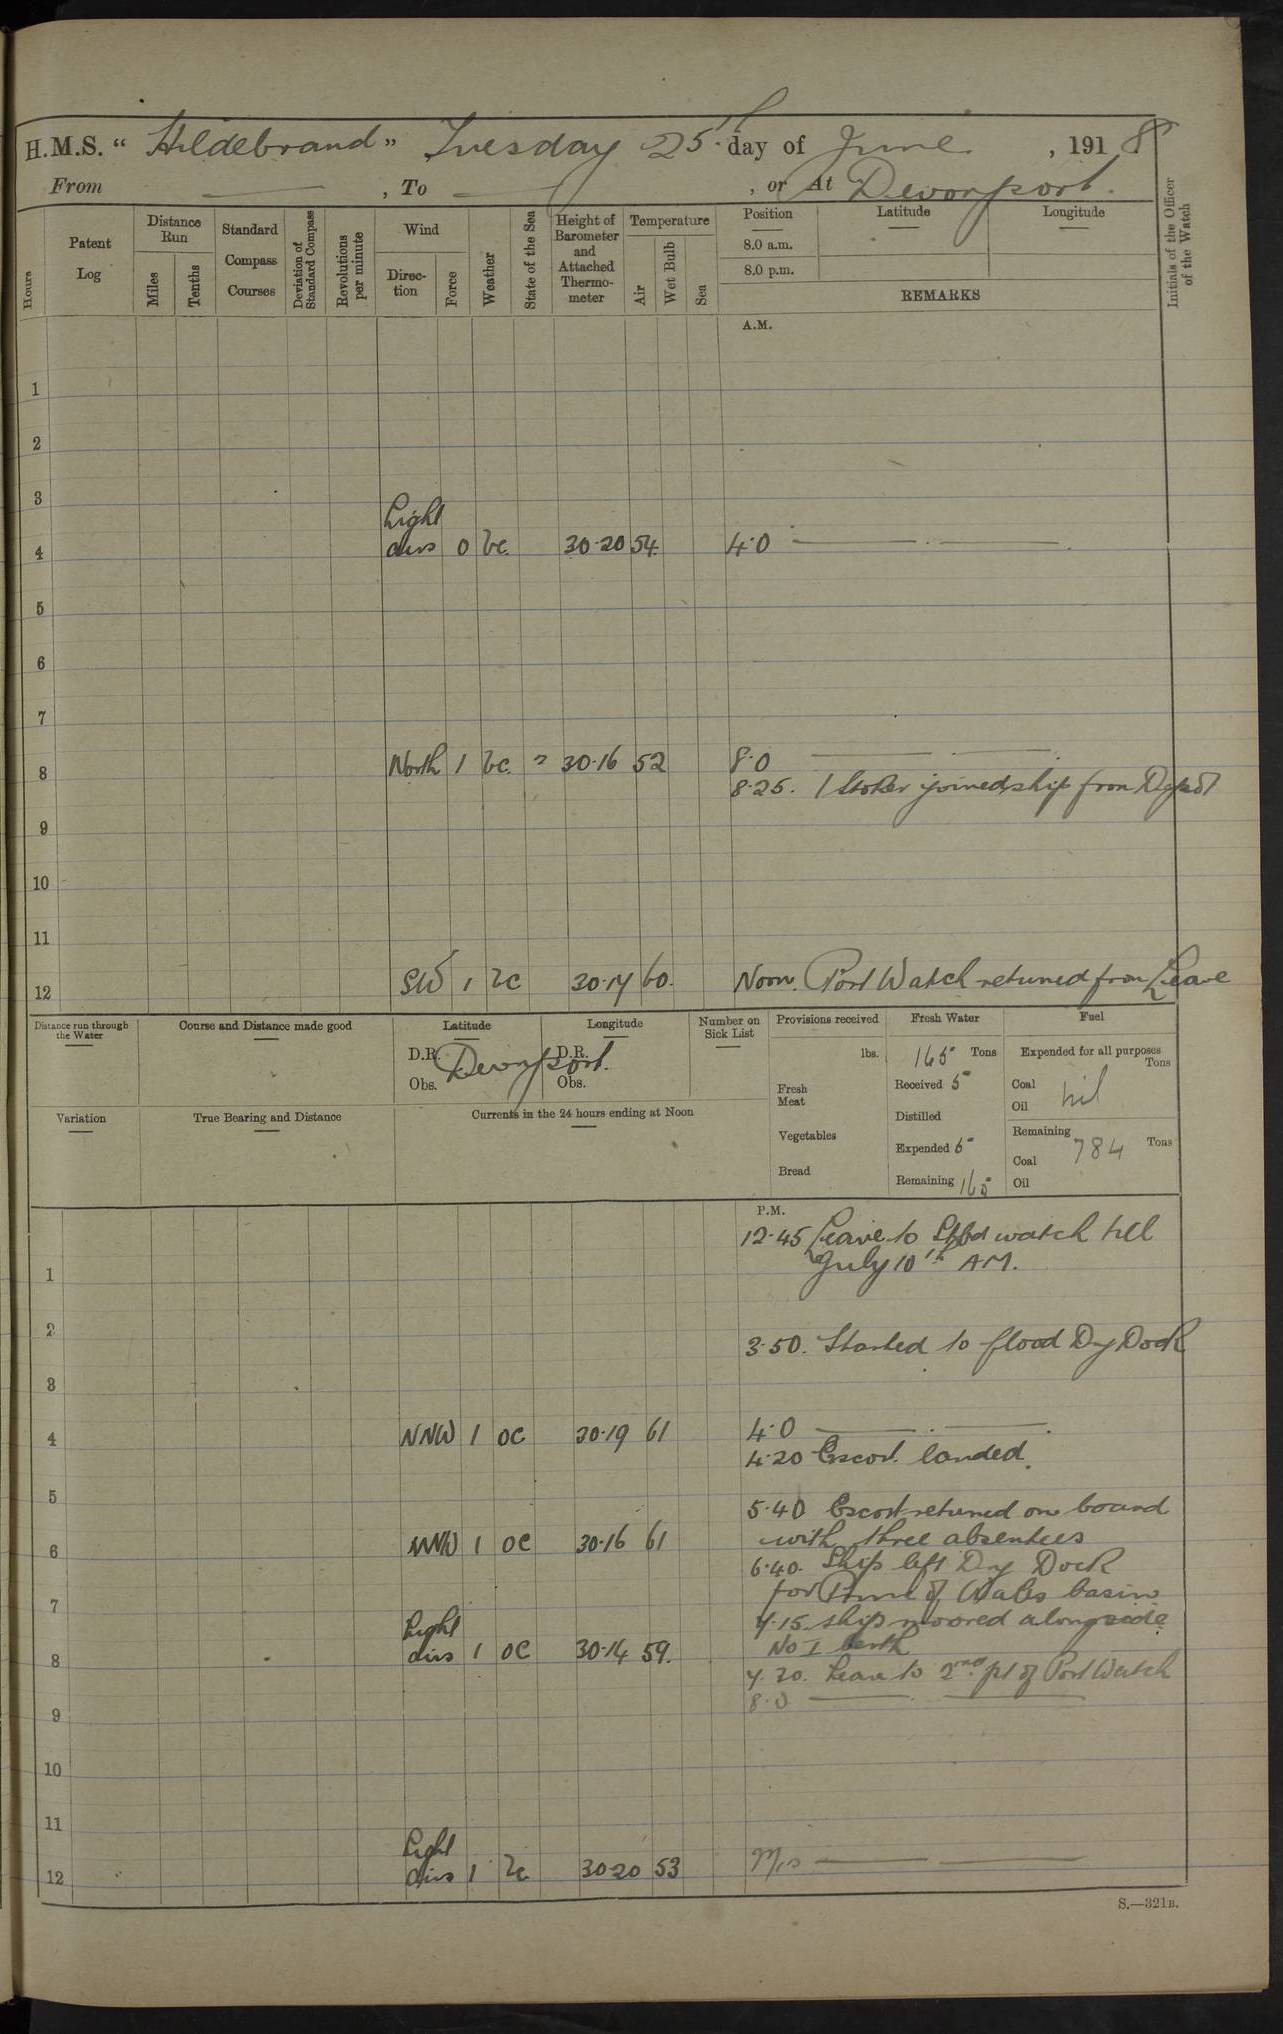 H.M.S. “ Hildebrand ” Tuesday 25th day of June , 1918
From — , To — , or At Devonport.
Hours
Patent Log
Distance Run
Miles
Tenths
Standard Compass Courses
Deviation of Standard Compass
Revolutions per minute
Wind
Direc-tion
Force
Weather
State of the Sea
Height of Barometer and Attached Thermo-meter
Temperature
Air
Wet Bulb
Sea
Position
Latitude
Longitude
8.0 a.m.
8.0 p.m.
REMARKS
Initials of the Officer of the Watch
A.M.
1
2
3
Light
4 airs 0 bc 30·20 54 4·0 — —
5
6
7
8 North 1 bc 30·16 52 8·0 — —
8·25. 1 Stoker joined ship from Depôt
9
10
11
12 SW 1 bc 30·17 60. Noon. Port Watch returned from Leave
Distance run through the Water
Course and Distance made good
Latitude
Longitude
D.R.
Obs.
Devonport.
D.R.
Obs.
Number on Sick List
Provisions received
lbs.
Fresh Meat
Vegetables
Bread
Fresh Water
165 Tons
Received 5
Distilled
Expended 5
Remaining 165
Fuel
Expended for all purposes
Tons
Coal
Oil
nil
Remaining
784 Tons
Coal
Oil
Variation
True Bearing and Distance
Currents in the 24 hours ending at Noon
P.M.
12·45 Leave to Stbd watch till
July 10th AM.
1
2
3·50. Started to flood Dry Dock
3
4 NNW 1 oc 30·19 61 4·0 — —
4·20 Escort landed.
5
5·40 Escort returned on board
with three absentees
6 NNW 1 oc 30·16 61
6·40. Ship left Dry Dock
for Prince of Wales basin
7
7·15. Ship moored alongside
No 1 berth
Light
8 airs 1 oc 30·14 59.
7.20. Leave to 2nd pt of Port Watch
8·0 — —
9
10
11
Light
12 airs 1 bc 30·20 53 — —
S.—321B.